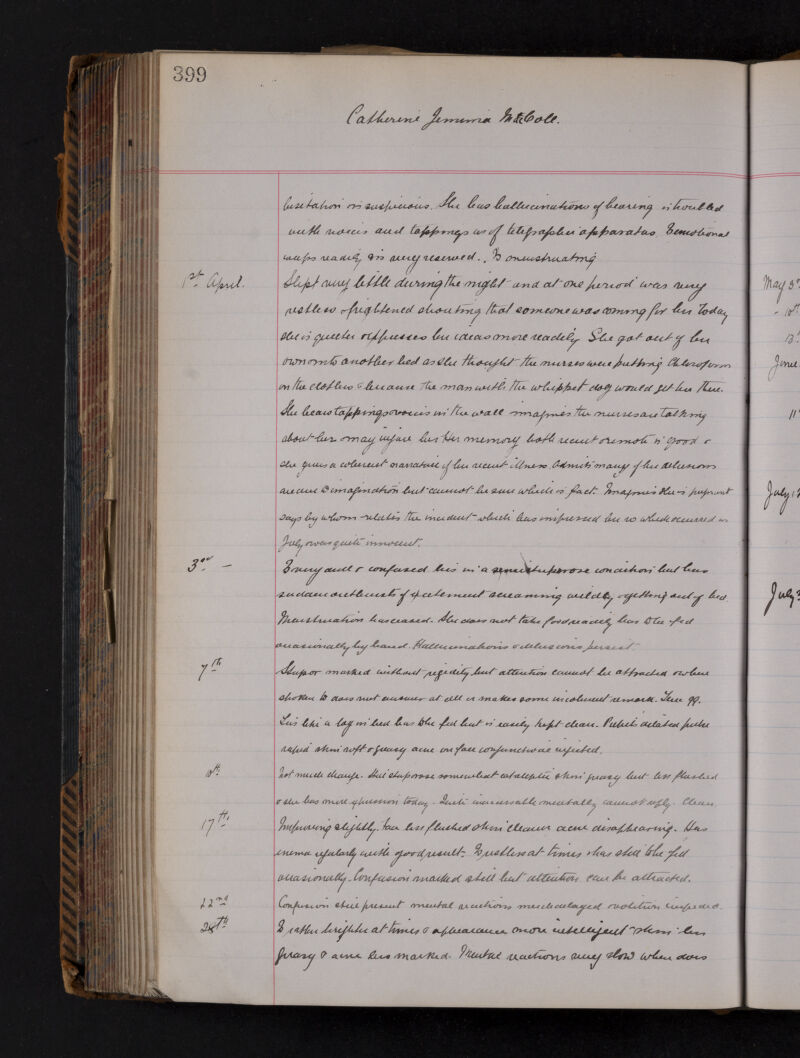 399
Catherine Jemima McColl.
hesitation or suspicions. She has hallucinations of hearing is troubled
with voices and tappings as of telegraphic apparatus. Emotional
weeps readily & is very reserved. Is menstruating
1st April. Slept very little during the night and at one period was very
restless & frightened shouting that someone was coming for her Today
she is quieter & expresses her ideas more readily She got out of her
own into another bed as she thought the nurses were putting Chloroform
on the clothes & because the man with the whippet dog would get her there.
She hears tappings & voices in the wall imagines the nurses are talking
about her & may injure her. Her memory both recent & remote is good &
she gives a coherent narrative of her recent illness Admits many of her delusions
are due to imagination but cannot be sure which is fact. Imagines she is pregnant
says by whom & relates the incident which has impressed her so which occurred in
July & was quite innocent.
3rd – Is very dull & confused lies in a stuporose condition but has
sudden outbursts of excitement screaming wildly & getting out of bed
Menstruation has ceased. She does not take food readily has to be fed
occasionally by hand. Hallucinations & delusions persist
7th Stupor marked without rigidity but attention cannot be attracted & when
spoken to does not answer at all or makes some incoherent remark. Temp 99.
Lies like a log in bed has to be fed but is easily kept clean. Pupils dilated pulse
rapid skin soft & greasy acne on face conjunctivae injected.
Not much change. Still stuporose somewhat cataleptic skin greasy but less flushed
& she has more expression today. Quite inaccessible mentally cannot reply. Clean
17th Improving slightly. Face less flushed skin cleaner acne disappearing. Has
enema regularly with good result. Is restless at times & has still to be fed
occasionally. Confusion marked still but attention can be attracted.
22nd Confusion still present mental reactions much delayed & volition impeded.
Is rather brighter at times & appearance more intelligent skin less
greasy & acne less marked. Mental reactions very slow when does
May 3rd
June
July
July